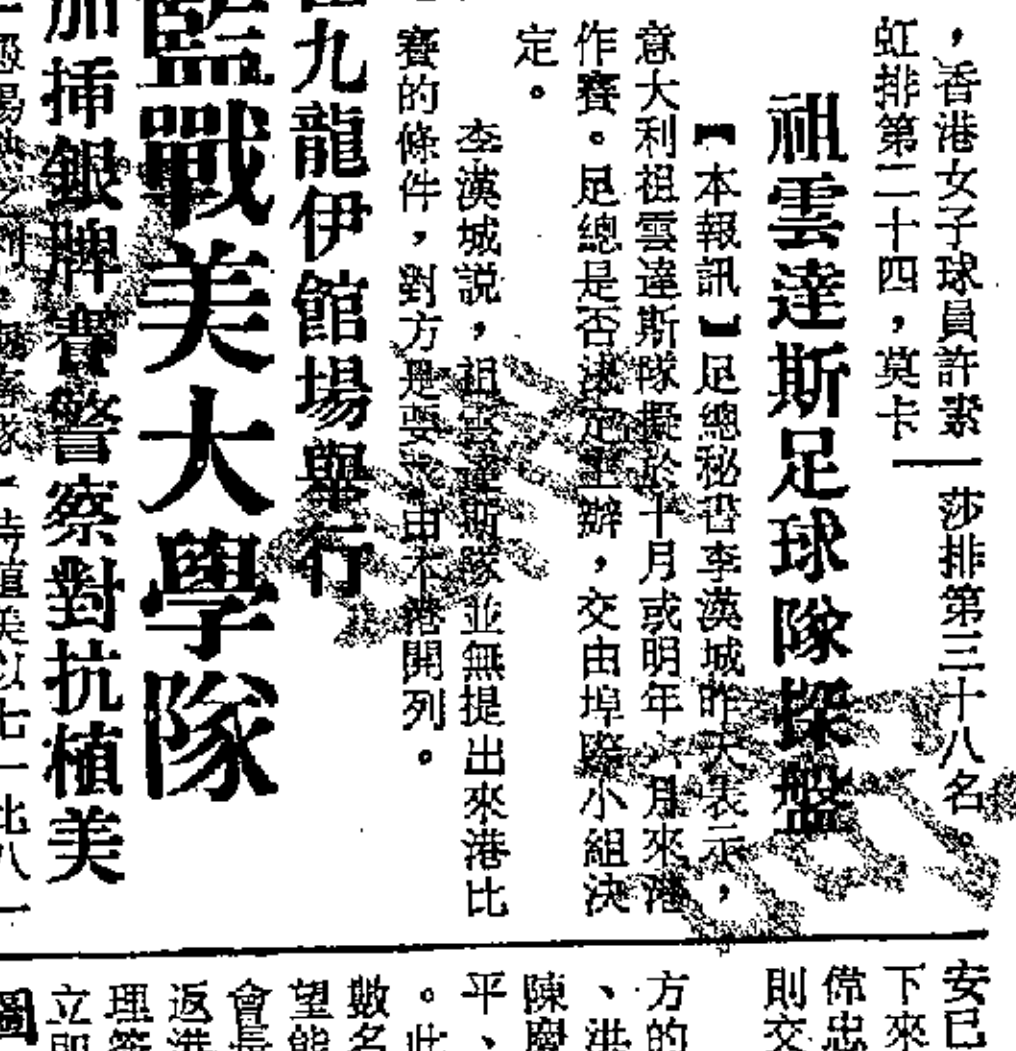 ，香港女子球員許素
莎排第三十八名。
虹排第二十四，莫卡
祖雲達斯足球隊探盤
【本報訊】足總秘書李漢城昨天表示，
意大利祖雲達斯隊擬於十月或明年六月來港
作賽。足總是否決定主辦，交由埠際小組決
定。
李漢城說，祖雲達斯隊並無提出來港比
賽的條件，對方是要求由本港開列。
九龍伊館場舉行
監戰美大學隊
加插銀牌賽警察對抗植美
安已
下來
偉忠
則交
方的
、洪
陳慶
平、
。此
數名
望能
會長
返港
理簽
立即
圖